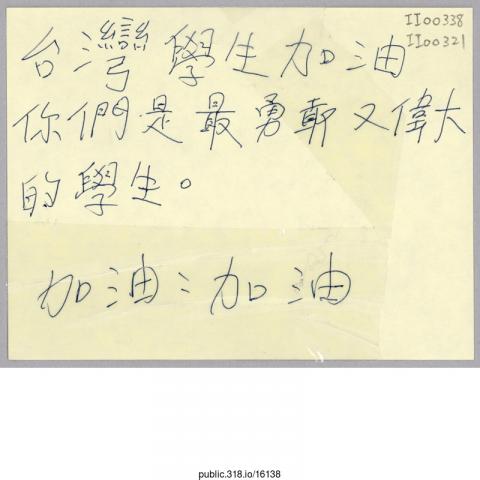 II00338
II00321
台灣學生加油
你們是最勇敢又偉大
的學生。
加油:加油
public.318.io/16138